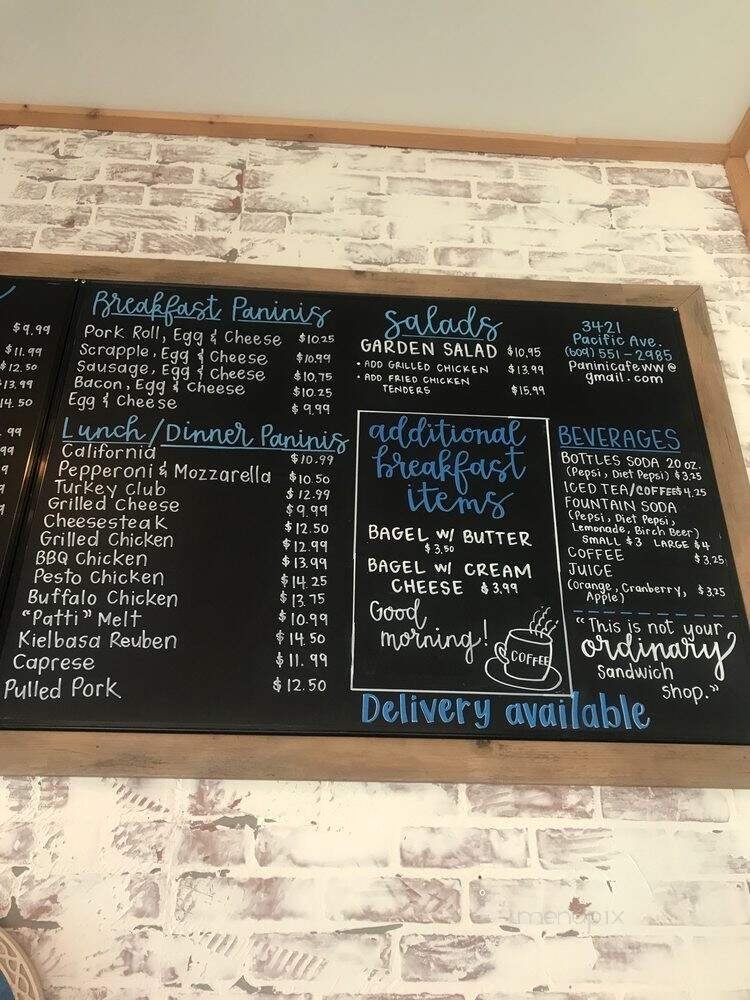 $9.99
$11.99
$12.50
$13.99
14.50
.99
Breakfast Paninis
Pork Roll, Egg & Cheese $10.25
Scrapple, Egg & Cheese $10.99
Sausage, Egg & Cheese $10.75
Bacon, Egg & Cheese $10.25
Egg & Cheese $9.99
Lunch/Dinner Paninis
California $10.99
Pepperoni & Mozzarella $10.50
Turkey Club $12.99
Grilled Cheese $9.99
Cheesesteak $12.50
Grilled Chicken $12.99
BBQ Chicken $13.99
Pesto Chicken $14.25
Buffalo Chicken $13.75
"Patti" Melt $10.99
Kielbasa Reuben $14.50
Caprese $11.99
Pulled Pork $12.50
Salads
GARDEN SALAD $10.95
• ADD GRILLED CHICKEN $13.99
• ADD FRIED CHICKEN
TENDERS $15.99
additional
breakfast
items
BAGEL W/ BUTTER
$3.50
BAGEL W/ CREAM
CHEESE $3.99
Good
morning!
COFFEE
Delivery available
3421
Pacific Ave.
(609) 551-2985
Paninicafeww@
gmail.com
BEVERAGES
BOTTLES SODA 20 oz.
(Pepsi, Diet Pepsi) $3.25
ICED TEA/COFFEE $4.25
FOUNTAIN SODA
(Pepsi, Diet Pepsi,
Lemonade, Birch Beer)
SMALL $3 LARGE $4
COFFEE $3.25
JUICE
(Orange, Cranberry, $3.25
Apple)
"This is not your
ordinary
sandwich
shop."
menupix